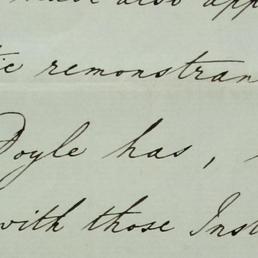 also app
ic remonstran
Doyle has,
with those Inst